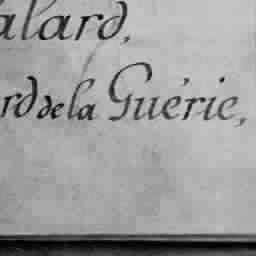 alard,
rd de la Guérie,